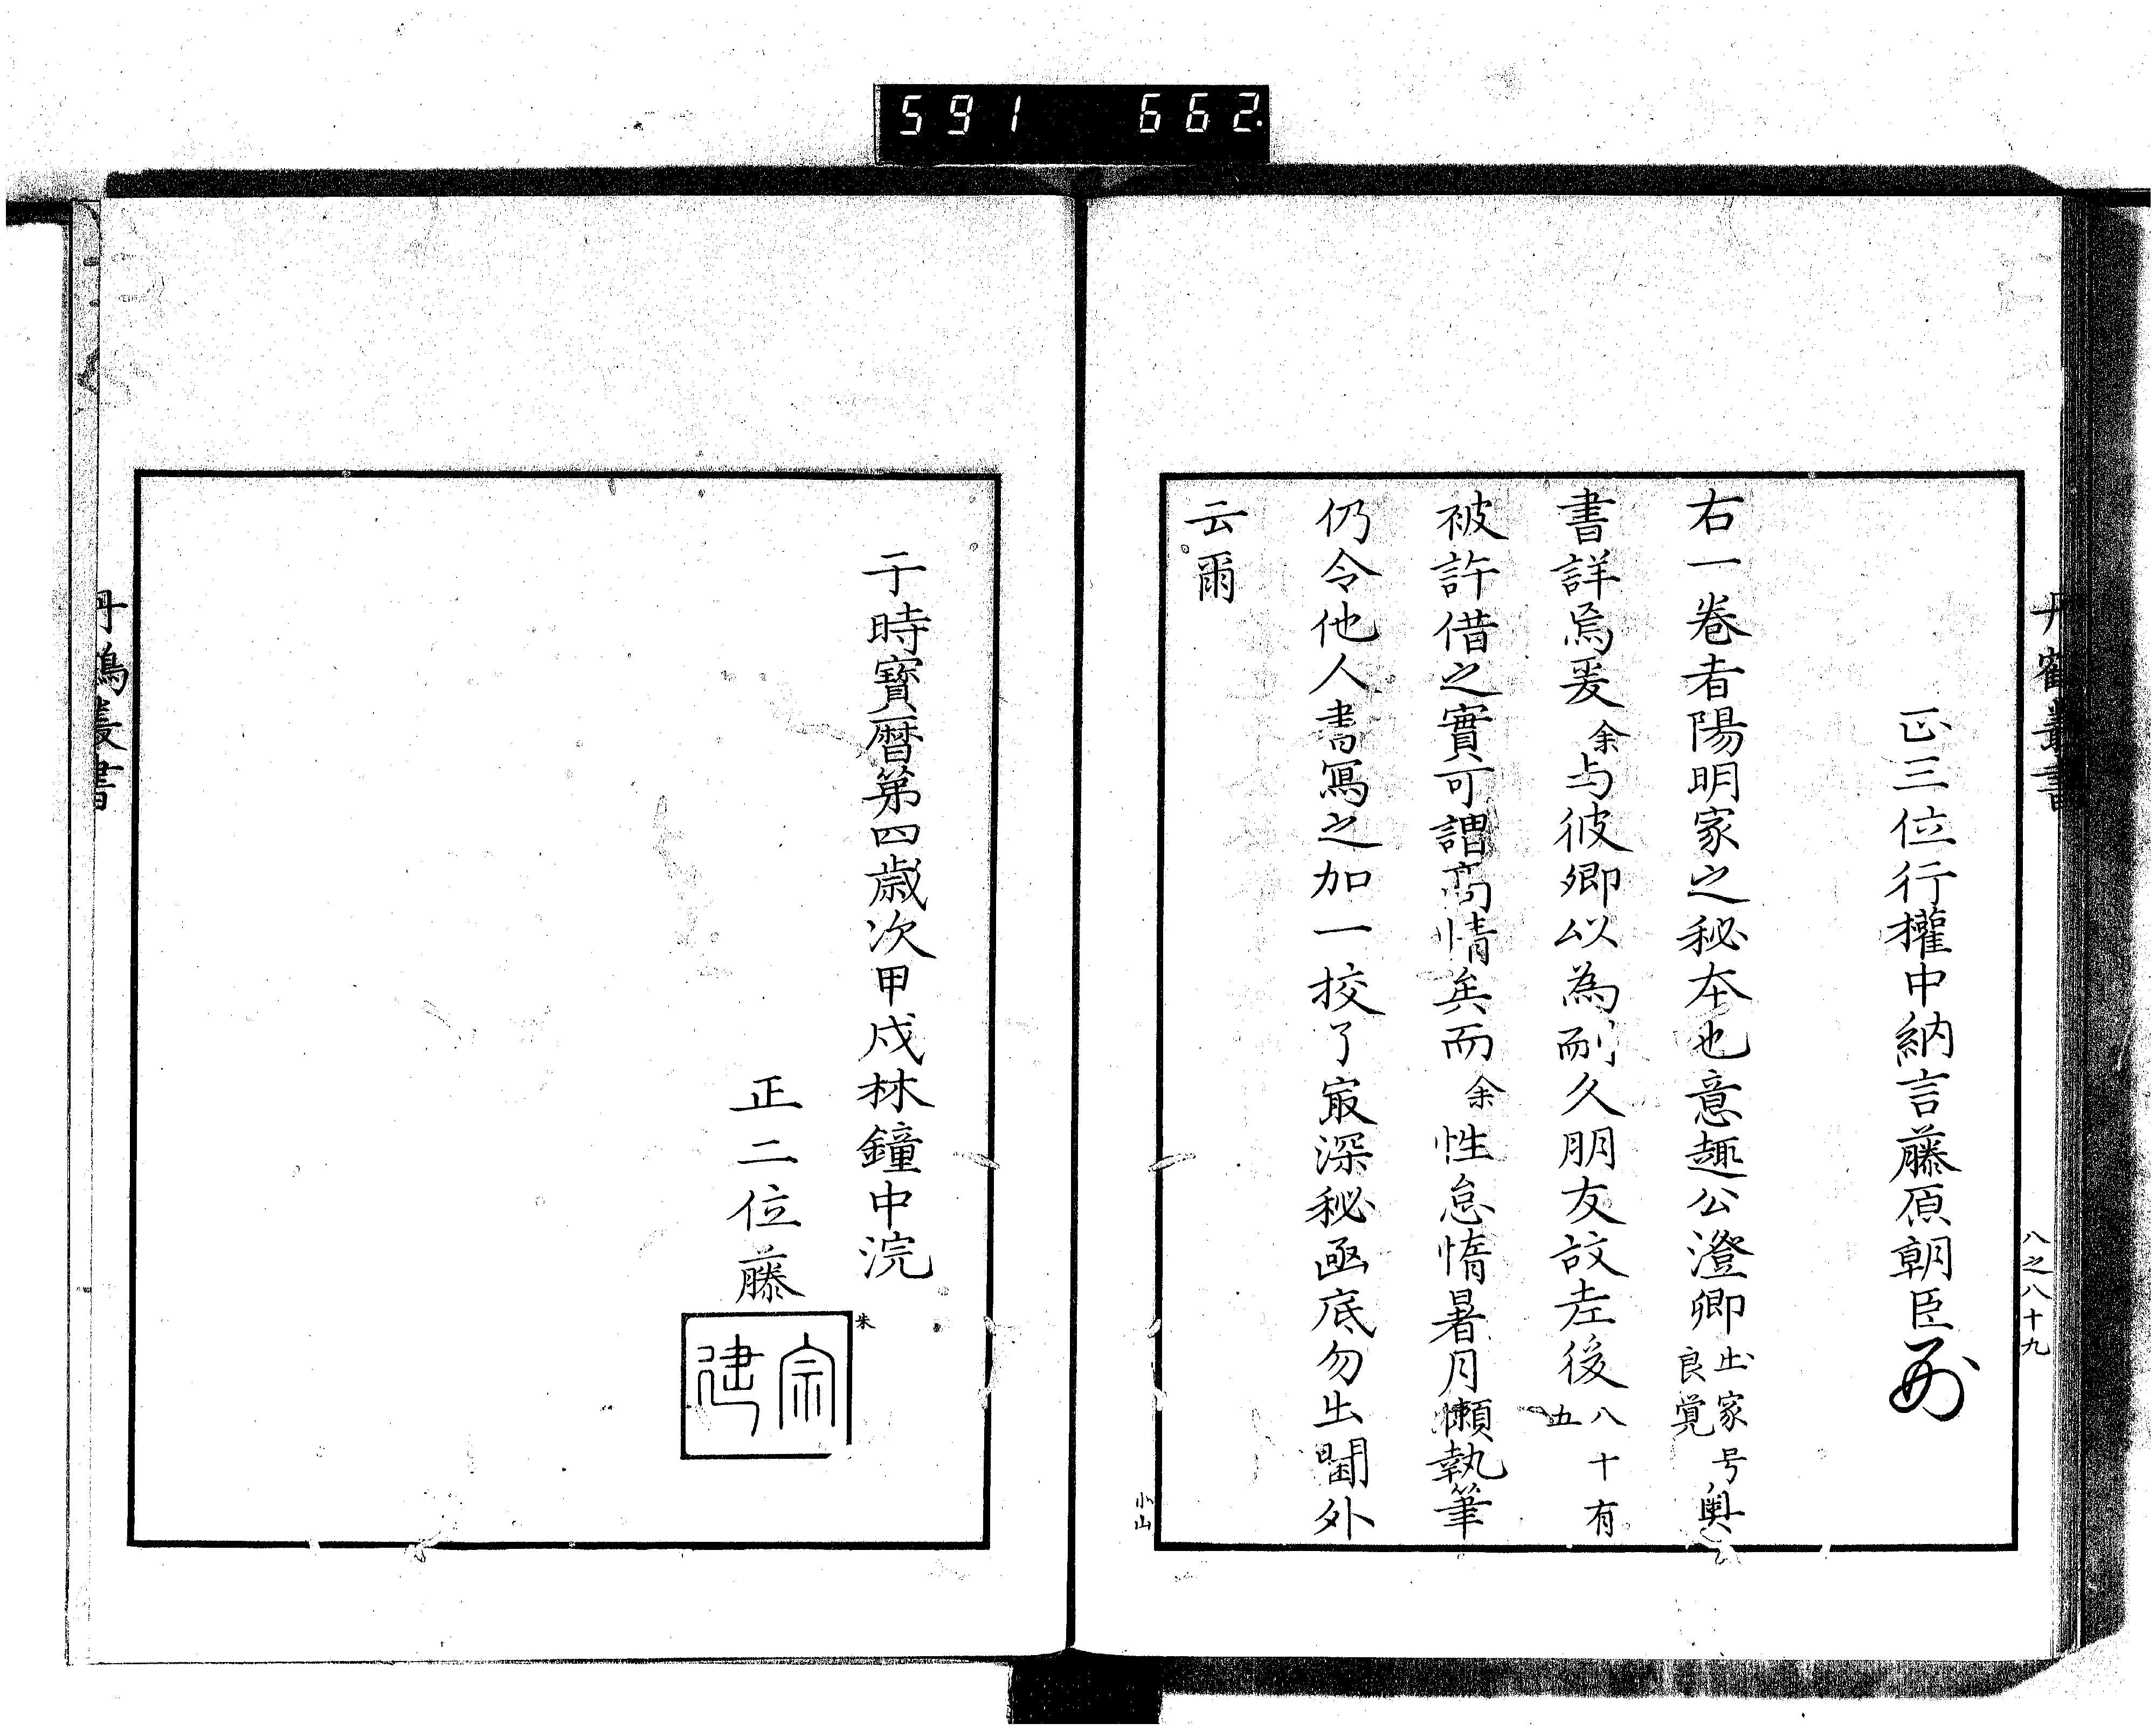 591 662
丹鶴叢書
八之八十九
正三位行權中納言藤原朝臣
右一卷者陽明家之秘本也意趣公澄卿出家号良覚奥
書詳焉爰余与彼卿以為耐久朋友故左後八十有五
被許借之實可謂高情矣而余性怠惰暑月懶執筆
仍令他人書寫之加一挍了㝡深秘凾底勿出閫外
云爾
小山
于時寳曆第四歳次甲戌林鐘中浣
正二位藤
朱
宗建
丹鶴叢書